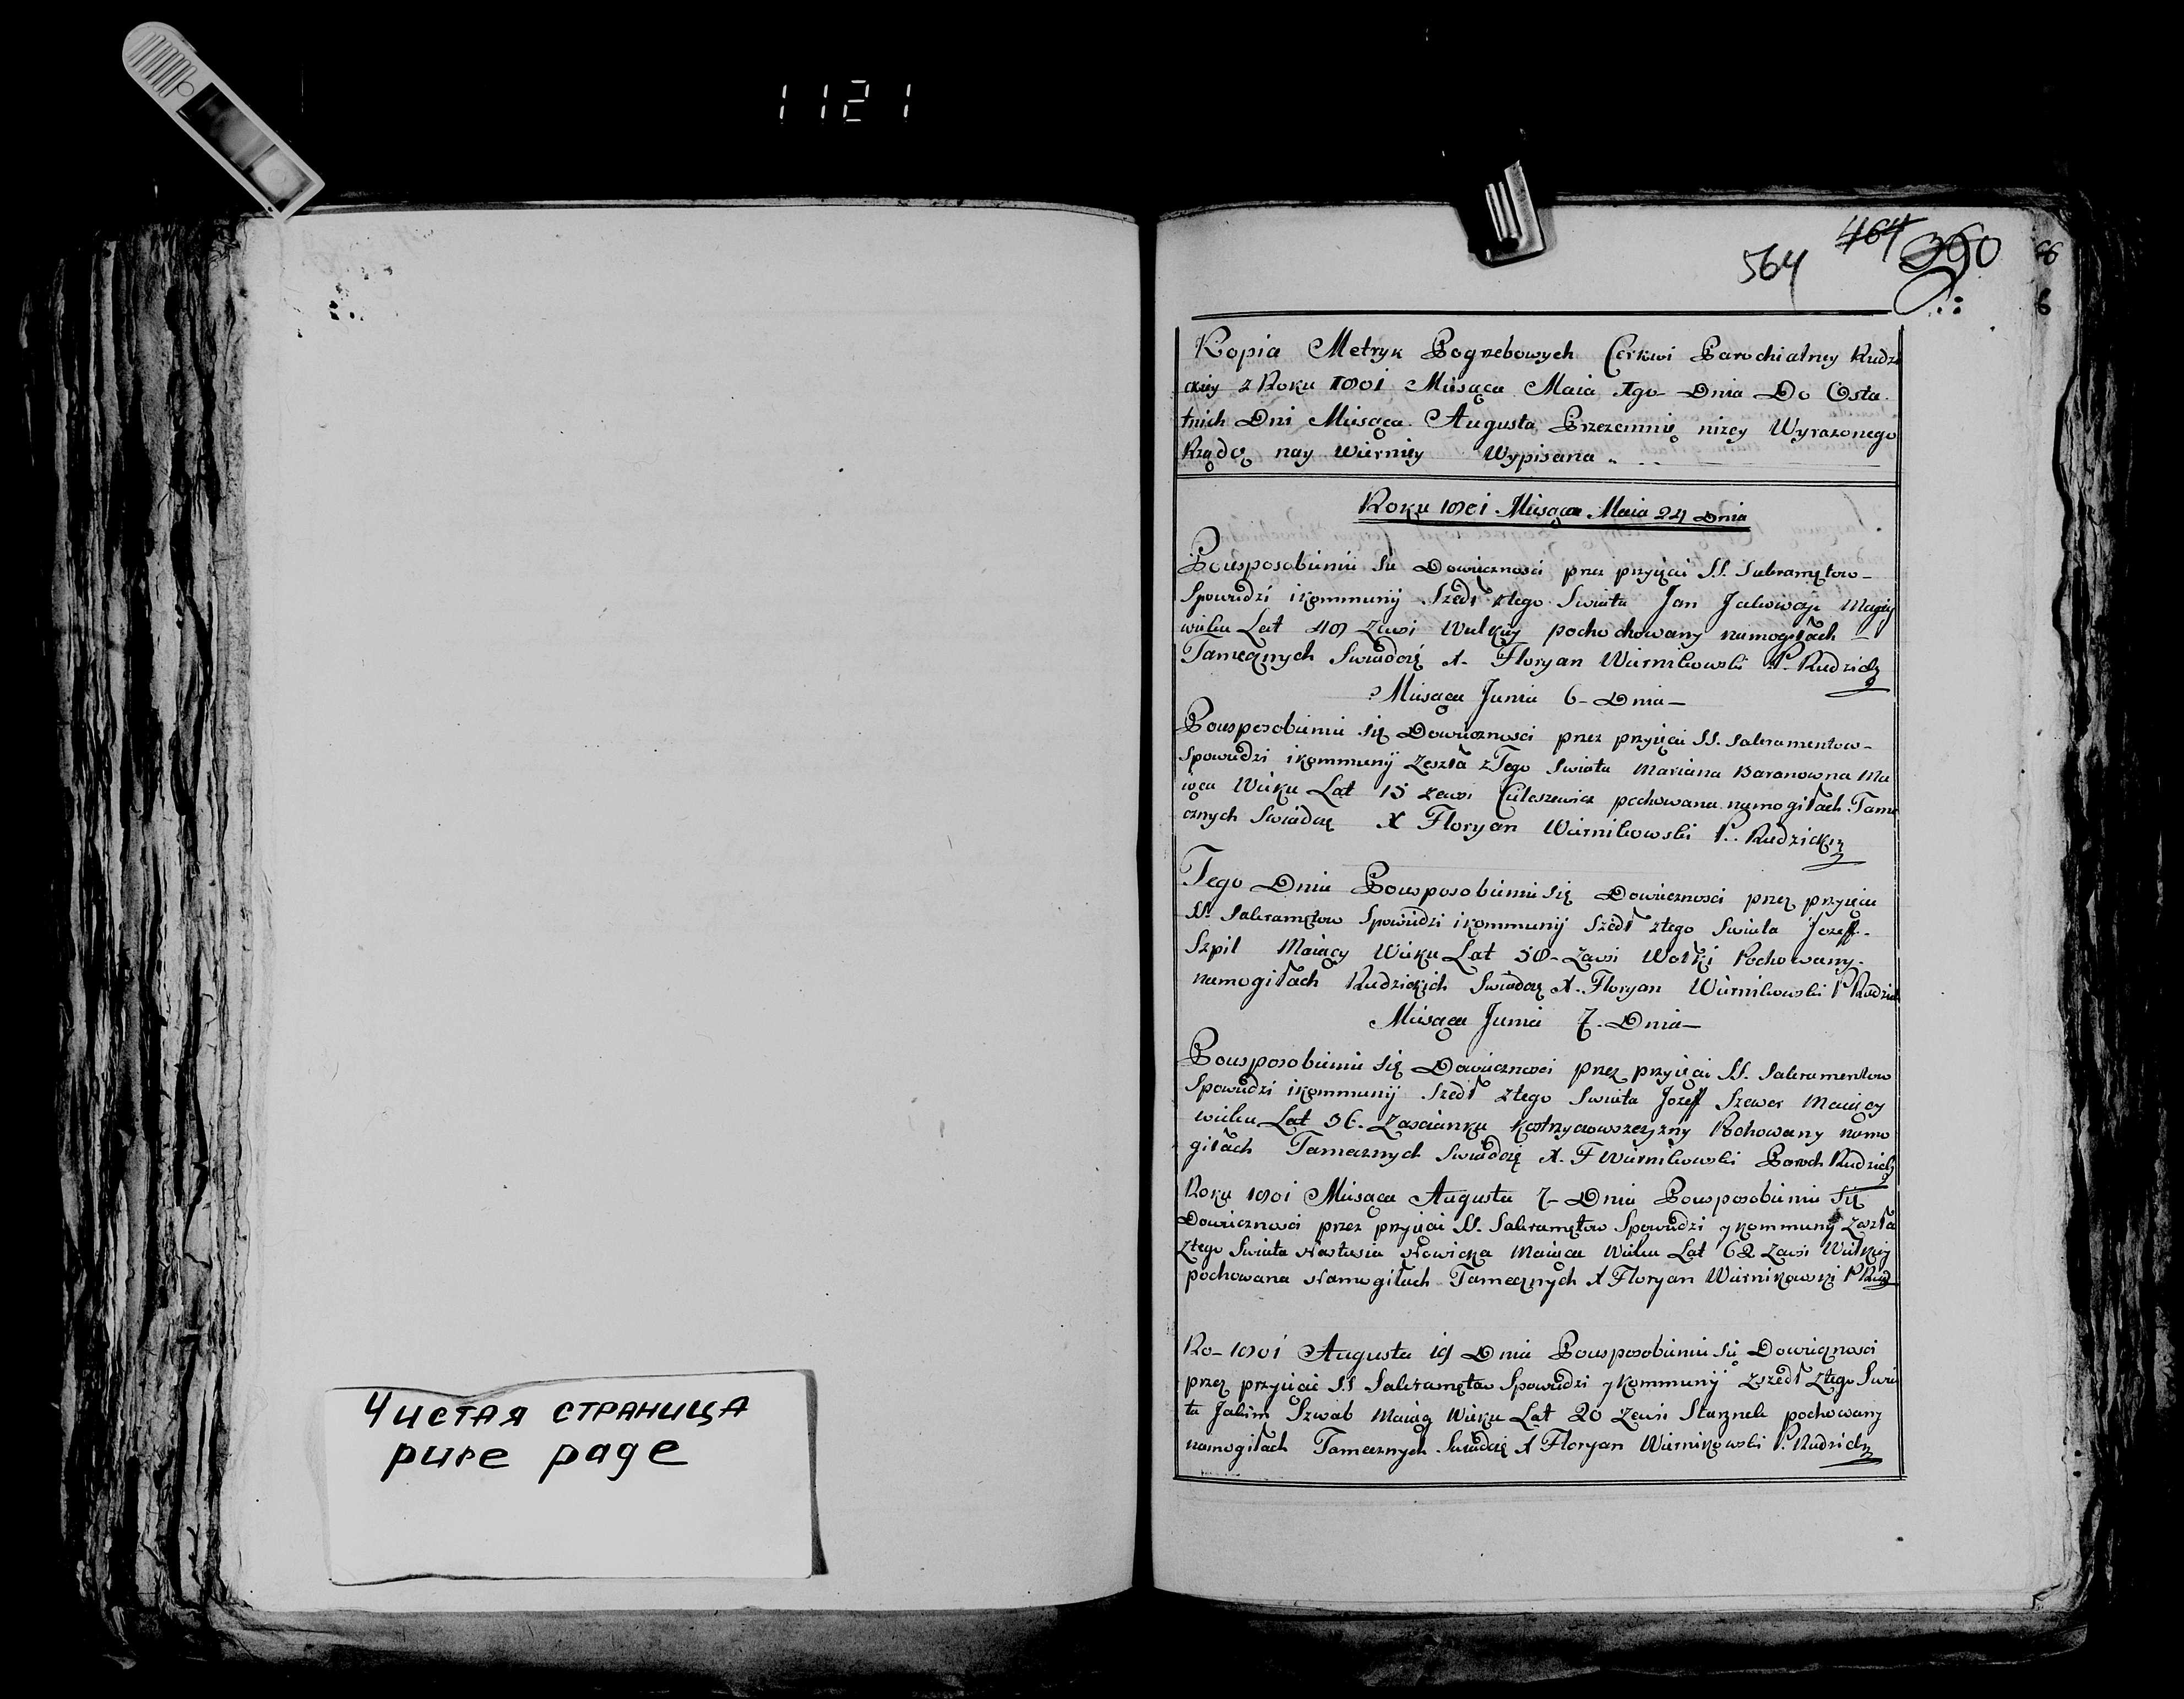 1121
564 464 390
Kopia Metryk Pogrzebowych Cerkwi Parochialney Rudzi
ckiey z Roku 1801 Miesąca Maia 1go Dnia Do Osta
tnich Dni Miesąca Augusta Przezemnię niżey Wyrazonego
Rządcę nay wierniey Wypisana
Roku 1801 Miesąca Maia 24 Dnia
Pousposobieniu Się Dowieczności przez przyięcie SS. Sakramętow
Spowiedzi i kommunij Szedł ztego Swiata Jan
wieku Lat 48 Zewsi Wielkiey pochochowany namogiłach
Tamecznych Swiadczę X. Floryan Wiernikowski P. Rudzicki
Miesąca Junia 6 Dnia
Pousposobieniu Się Dowieczności przez przyięcie SS. Sakramentow
Spowiedzi i kommunij Zeszła zTego Swiata Mariana Baranowna Ma
iąca Wieku Lat 15 zewsi pochowana namogiłach Tame
cznych Swiadczę X Floryan Wiernikowski P. Rudzicki
Tego Dnia Pousposobieniu Się Dowieczności przez przyięcie
SS. Sakramętow Spowiedzi i kommunij Szedł ztego Swiata Jozeff
Szpil Maiący Wieku Lat 50 Zewsi Wolki Pochowany
namogiłach Rudzickich Swiadczę X. Floryan Wiernikowski P Rudzick
Miesąca Junia 7 Dnia
Pousposobieniu Się Dowieczności przez przyięcie SS. Sakramentow
Spowiedzi i kommunij Szedł ztego Swiata Jozeff Szewer Maiący
wieku Lat 56. Zascianku Pochowany namo
giłach Tamecznych Swiadczę X. F Wiernikowski Paroch Rudzicki
Roku 1801 Miesąca Augusta 7 Dnia Pousposobieniu Się
Dowieczności przez przyięcie SS. Sakramętow Spowiedzi y kommunij Zeszła
Ztego Swiata Nastasia Nowicka Maiąca Wieku Lat 62 Zewsi Wielkiey
pochowana Namogiłach Tamecznych X Floryan Wiernikowski P Rud
Ro 1801 Augusta 19 Dnia Pousposobieniu Się Dowieczności
przez przyięcie SS Sakramętow Spowiedzi y Kommunij Zszedł Ztego Swia
ta Jakim Szwab Maiąc Wieku Lat 20 Zewsi pochowany
namogiłach Tamecznych Swiadczę X Floryan Wiernikowski P. Rudzicki
Чистая страница
pure page